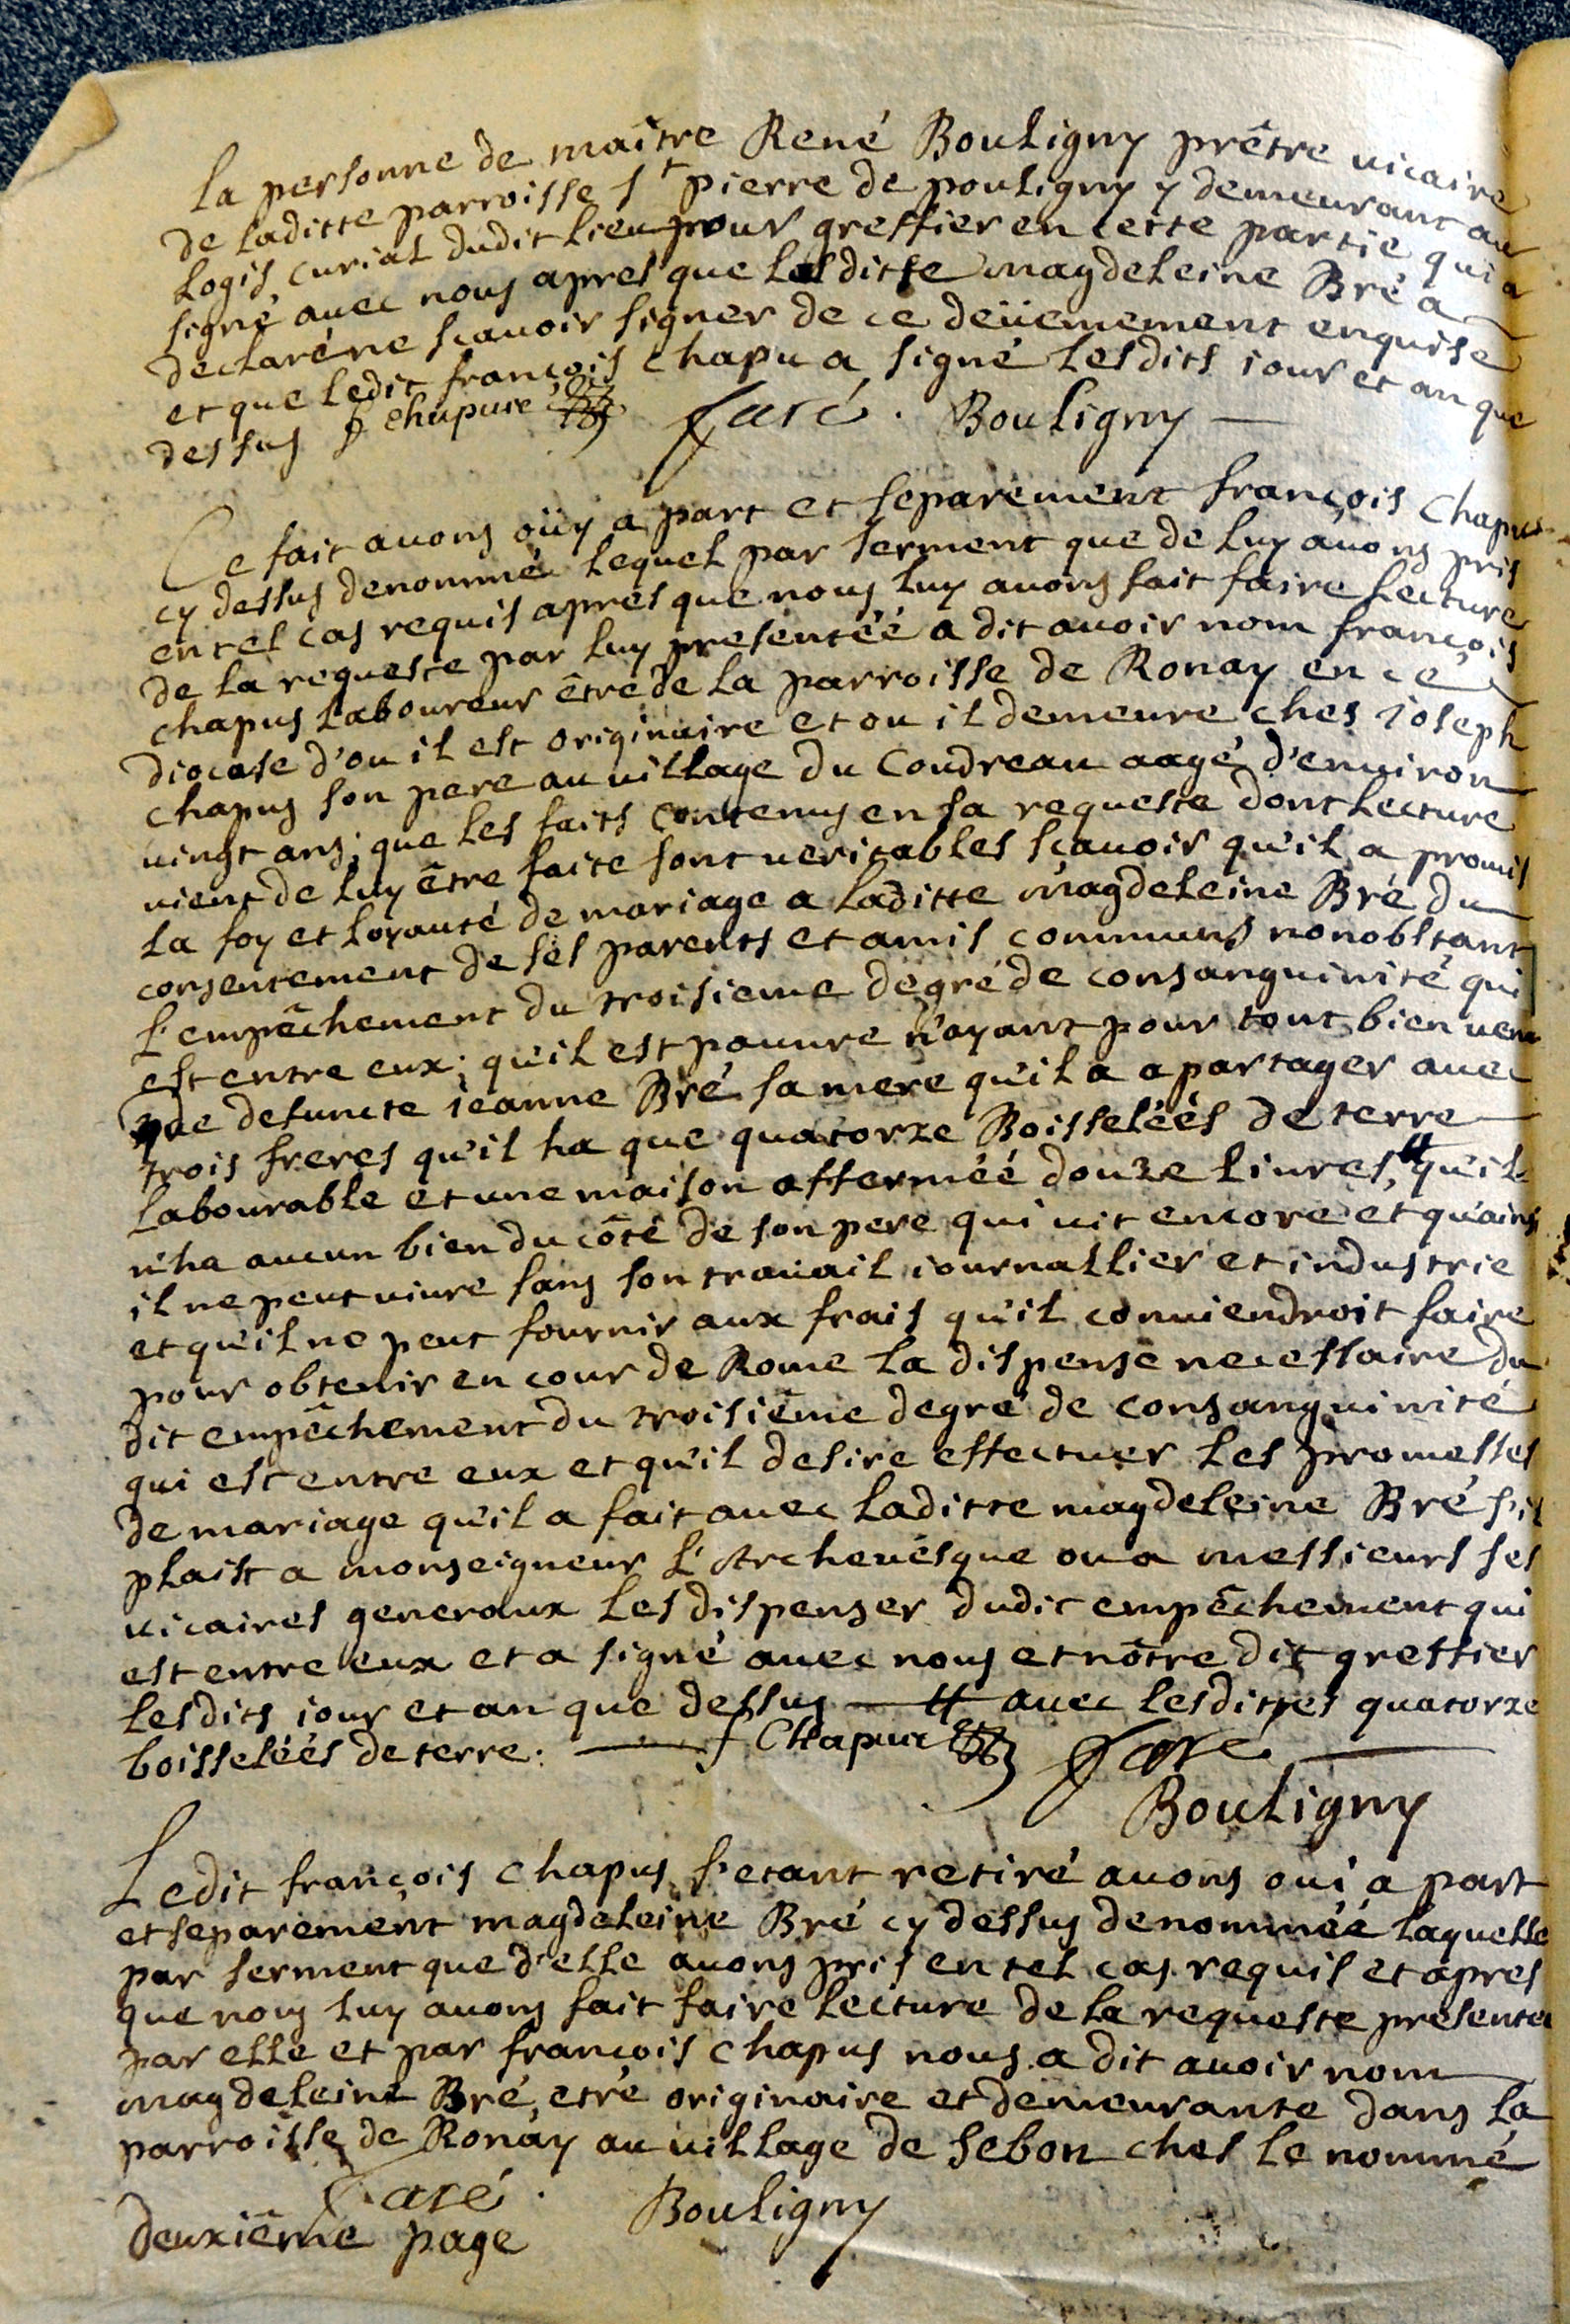 la personne de maître René Bouligny prêtre uicaire
de laditte parroisse St pierre de pouligny y demeurant au
logis curial dudit lieu pour greffier en cette partie qui a
signé auec nous apres que laditte magdeleine Bré a
declaré ne scauoir signer de ce deüemement enquise
et que ledit françois chapu a signé lesdits iour et an que
dessus f chapuis faré . Bouligny
Ce fait auons oüy a part et separement françois Chapus
cy dessus denommé lequel par serment que de luy auons pris
en tel cas requis apres que nous luy auons fait faire lecture
de la requeste par luy presentéé a dit auoir nom françois
chapus laboureur être de la parroisse de Ronay en ce
diocase d'ou il est originaire et ou il demeure ches ioseph
chapus son pere au uillage du Coudreau aagé d'enuiron
uingt ans; que les faits contenus en sa requeste dont lecture
uient de luy être faite sont ueritables scauoir qu'il a promis
la foy et loyauté de mariage a laditte magdeleine Bré du
consentement de ses parents et amis communs nonobstant
l'empêchement du troisieme degré de consanguinité qui
est entre eux; qu'il est pauure n'ayant pour tout bien uenu
de defuncte ieanne Bré sa mere qu'il a a partager auec
trois freres qu'il ha que quatorze Boisseléés de terre
labourable et une maison afferméé douze liures,# qu'il
n'ha aucun bien du côté de son pere qui uit encore et qu'ains
il ne peut uiure sans son trauail iournallier et industrie
et qu'il ne peut fournir aux frais qu'il conuiendroit faire
pour obtenir en cour de Rome la dispense necessaire du
dit empêchement du troisiême degré de consanguinité
qui est entre eux et qu'il desire effectuer les promesses
de mariage qu'il a fait auec laditte magdeleine Bré s'il
plaist a monseigneur l'Archeuésque ou a messieurs ses
uicaires generaux les dispenser dudit empêchement qui
est entre eux et a signé auec nous et nôtre dit greffier
lesdits iour et an que dessus — # auec lesdittes quatorze
boisseléés de terre: — f Chapuis faré
Bouligny
Ledit françois chapus s'etant retiré auons oui a part
et separement magdeleine Bré cy dessus denomméé laquelle
par serment que d'elle auons pris en tel cas requis et apres
que nous luy auons fait faire lecture de la requeste presentéé
par elle et par françois chapus nous a dit auoir nom
magdeleine Bré, etre originaire et demeurante dans la
parroisse de Ronay au uillage de sebon ches le nommé
faré . Bouligny
deuxiême page